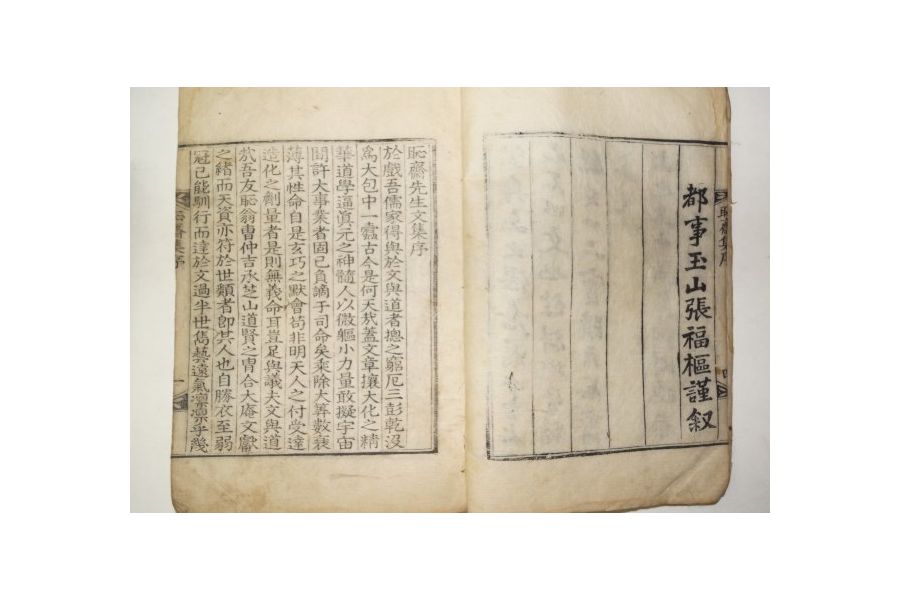 都事玉山張福樞謹叙
恥齋集序
四
恥齋先生文集序
於戲吾儒家得與於文與道者摠之窮厄三彭乾沒
爲大包中一蠹古今是何天哉蓋文章攘大化之精
華道學逼眞元之神髓人以微軀小力量敢擬宇宙
間許大事業者固已負謫于司命矣乘除大筭數衰
薄其性命自是玄巧之默會苟非明天人之付受達
造化之劑量者是則無義命耳豈足與議夫文與道
哉吾友恥翁曺仲吉承芝山道賢之冑合大庵文獻
之緖而天資亦符於世類者卽其人也自勝衣至弱
冠已能馴行而達於文過半世雋藝遠氣凛凛乎幾
恥齋集序
一